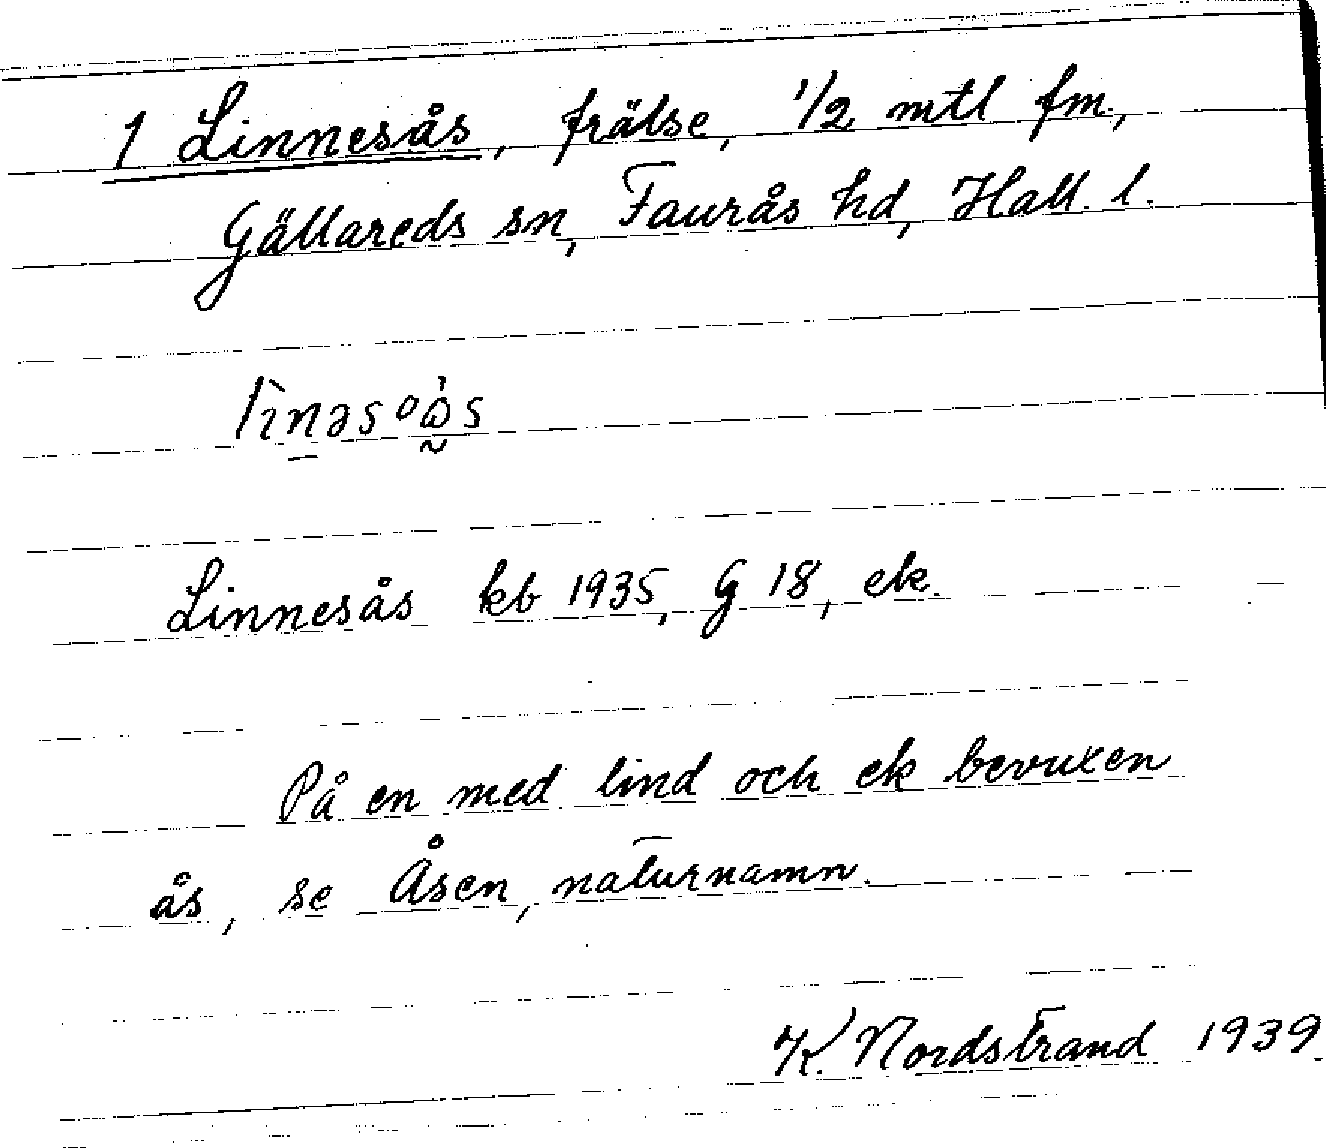 1 Linnesås, frälse, 1/2 mtl fm.,
Gällareds sn, Faurås hd, Hall. l.
lìnəsoὰs
Linnesås kb 1935, G 18, ek.
På en med lind och ek bevuxen
ås, se Åsen, naturnamn.
K. Nordstrand 1939